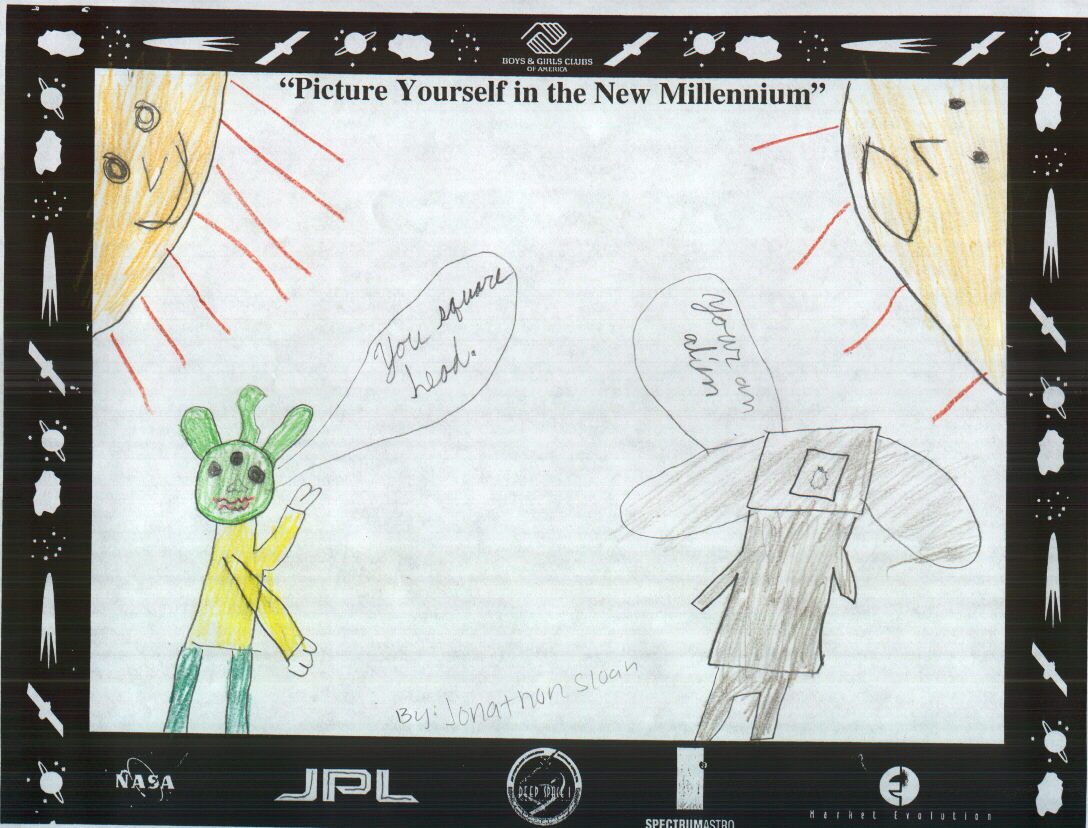 BOYS & GIRLS CLUBS
OF AMERICA
“Picture Yourself in the New Millennium”
You square
head.
your an
alim
By: Jonathon Sloan
NASA
JPL
DEEP SPACE 1
SPECTRUMASTRO
Market Evolution